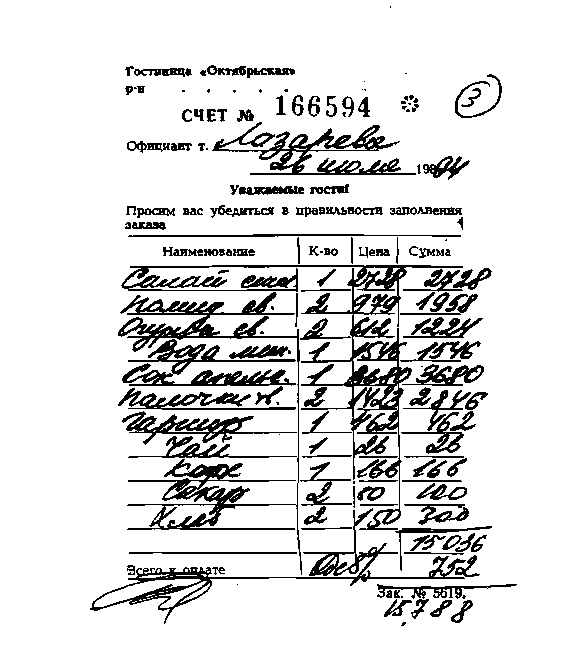 Гостиница «Октябрьская»
р-н . . . . .
СЧЕТ № 166594
3
Официант т. Лазарева
26 июля 1994
Уважаемые гости!
Просим вас убедиться в правильности заполнения
заказа
Наименование К-во Цена Сумма
Салат 1 2728 2728
Помид св. 2 979 1958
Огурцы св. 2 612 1224
Вода мин. 1 1546 1546
Сок апельс. 1 3680 3680
Палочки 2 1423 2846
Гарнир 1 462 462
Чай 1 26 26
Кофе 1 166 166
Сахар 2 50 100
Хлеб 2 150 300
15036
Всего к оплате 752
Зак. № 5619.
15788